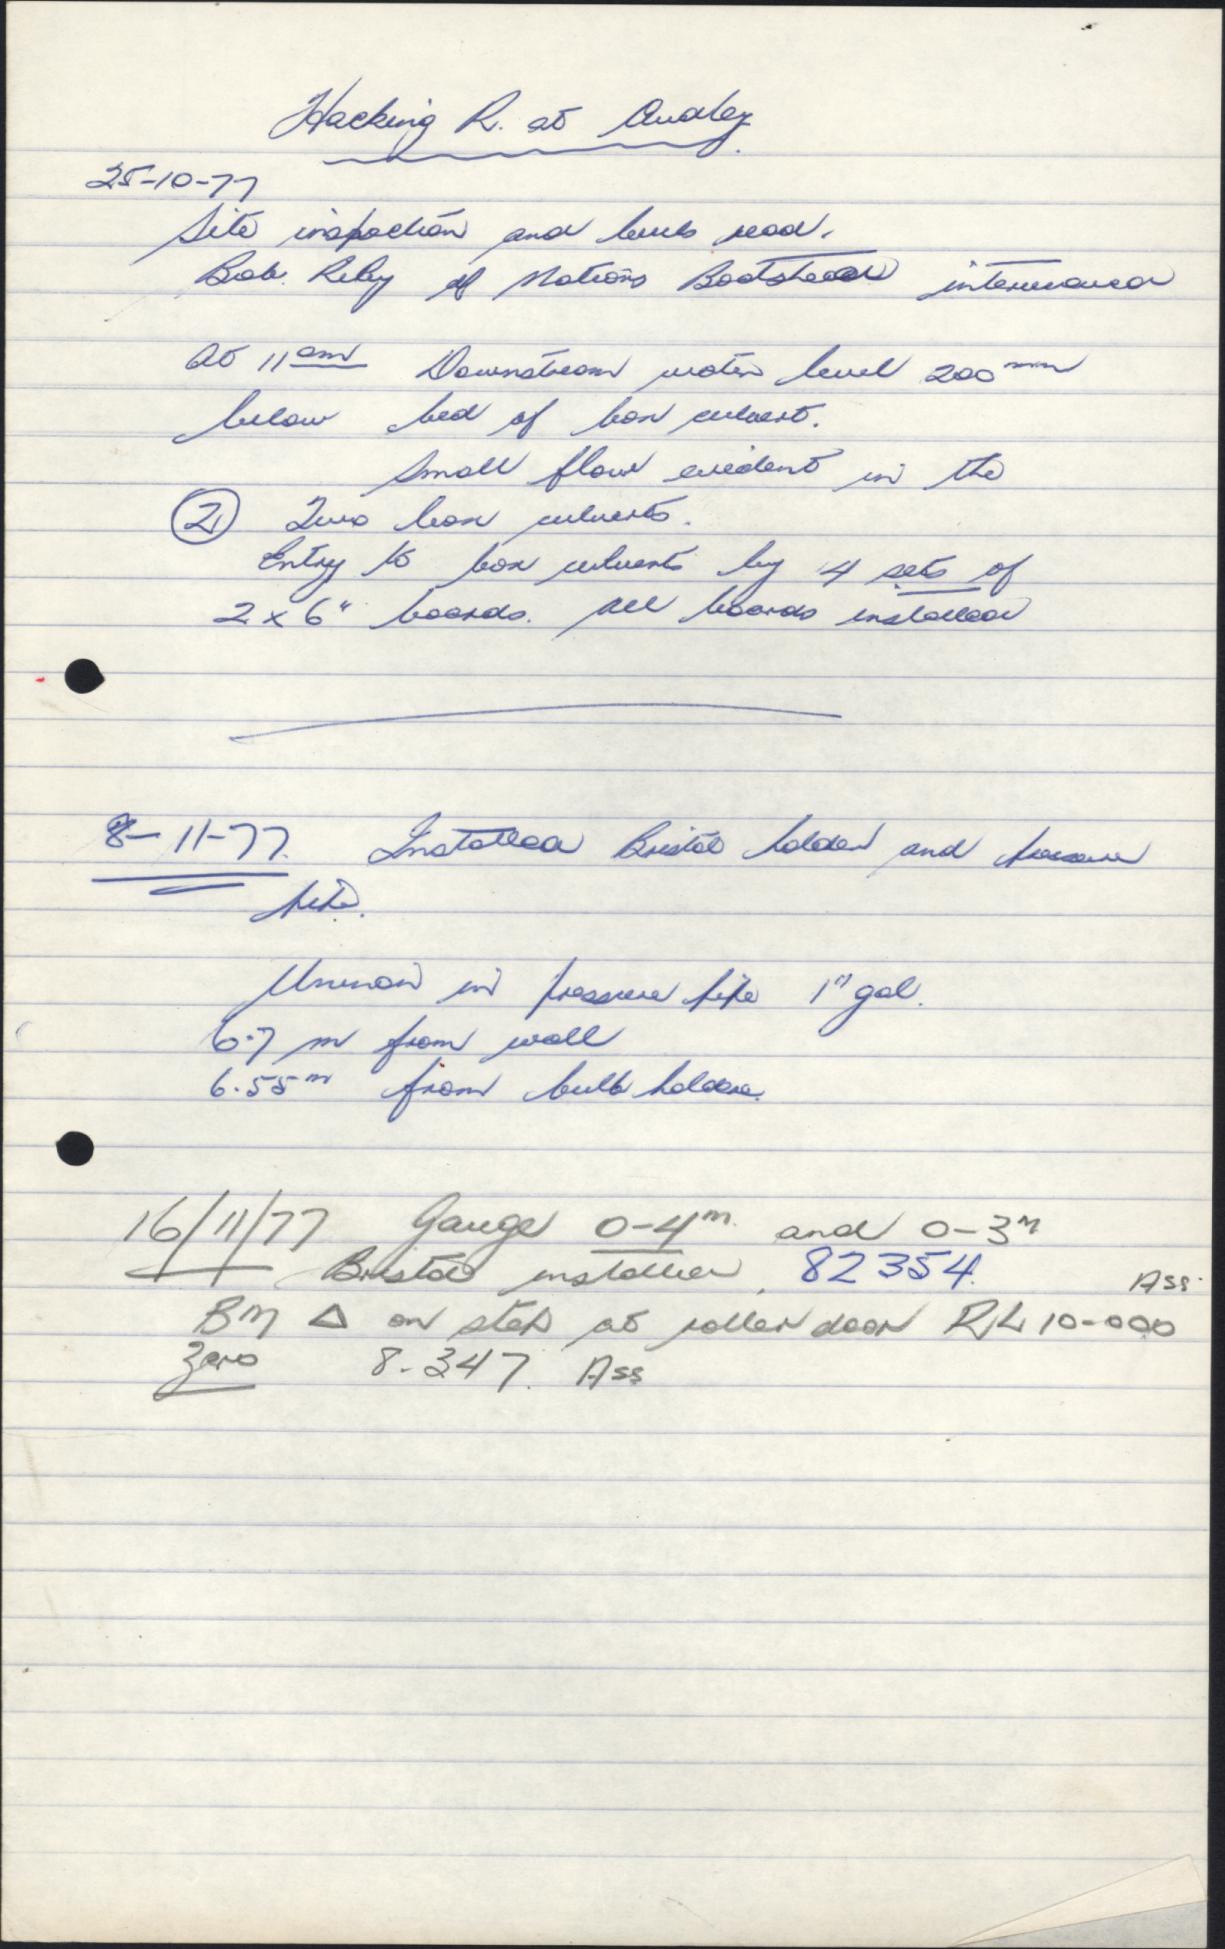 Hacking R. at Audley
25-10-77
Site inspection and levels read.
Bob Riley of Nations Boatshed interviewed
At 11 am Downstream water level 200 mm
below bed of box culvert.
Small flow evident in the
② Two box culverts.
Entry to box culverts by 4 sets of
2 x 6" boards. All boards installed
8-11-77. Installed Bristol holder and pressure
pipe.
Union in pressure pipe 1" gal.
6.7 m from wall
6.55 m from bulb holder.
16/11/77 Gauge 0-4m and 0-3m
Bristol installed 82354.
Ass.
BM △ on step at roller door RL 10-000
Zero 8-347. Ass